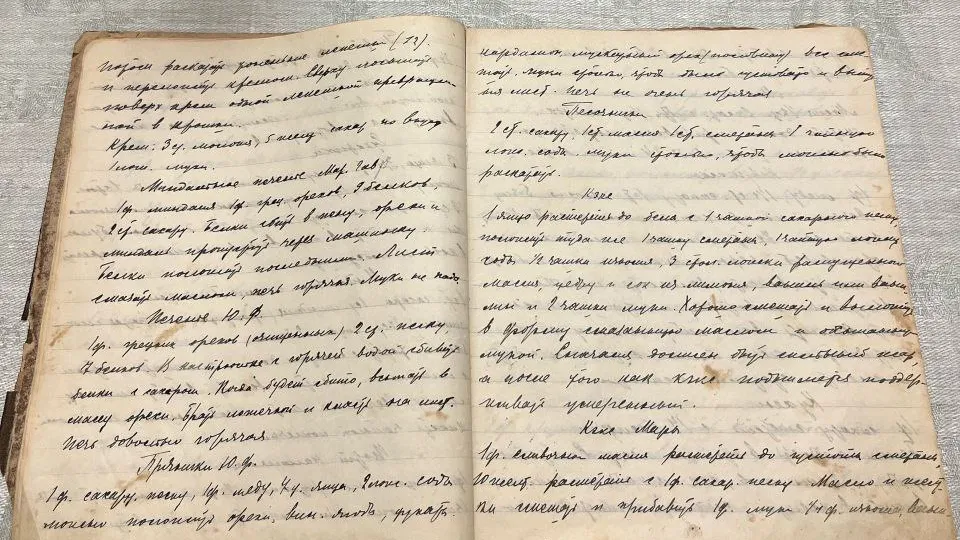 Потом раскатать тоненькие лепешки (13).
и перемазать кремом сверху посыпать
поверх крем одной лепешкой превращен-
ной в крошки.
Крем: 3 ст. молока, 5 песку сахар по вкусу
1 лож. муки.
Миндальное печенье Мар. Гавр.
1 ф. миндаля 1 ф. грец. орехов, 9 белков,
2 ст. сахару. Белки сбить в пену, орехи и
миндаль пропустить через машинку.
Белки положить последними. Лист
смазать маслом, печь горячая. Муки не надо.
Печенье Ю. Ф.
1 ф. грецких орехов (очищенных) 2 ст. песку
7 белков. В кастрюльке с горячей водой сбивать
белки с сахаром. Когда будет сбито, всыпать в
массу орехи, брать ложечкой и класть на лист.
Печь довольно горячая.
Пряники Ю. Ф.
1 ф. сахару песку, 1 ф. меду, 4 яйца, 2 лож. соды
можно положить орехи, вин. ягоды, цукаты.
кардамон, мускатный орех (половину) все сме-
шать. муки столько, чтоб было густовато и вылить
на лист. Печь не очень горячая.
Песочники
2 ст. сахару, 1 ст. масла 1 ст. сметаны 1 чайную
лож. соды муки столько, чтоб можно было
раскатать.
Кэкс
1 яйцо растереть до бела с 1 чашкой сахарного песку,
положить туда же 1 чашку сметаны, 1 чайную ложку
соды ½ чашки изюма, 3 стол. ложки распущенного
масла, цедру и сок из лимона, ваниль или вани-
лью и 2 чашки муки. Хорошо смешать и выложить
в форму смазанную маслом и обсыпанную
мукой. Вначале должен быть сильный жар
а после того как кэкс подымется поддер-
живать умеренный.
Кэкс Мары
1 ф. сливочн масла растереть до густоты сметаны,
10 желт. растереть с 1 ф. сахар. песку Масло и желт-
ки смешать и прибавить 1 ф. муки ¼ ф. изюма,